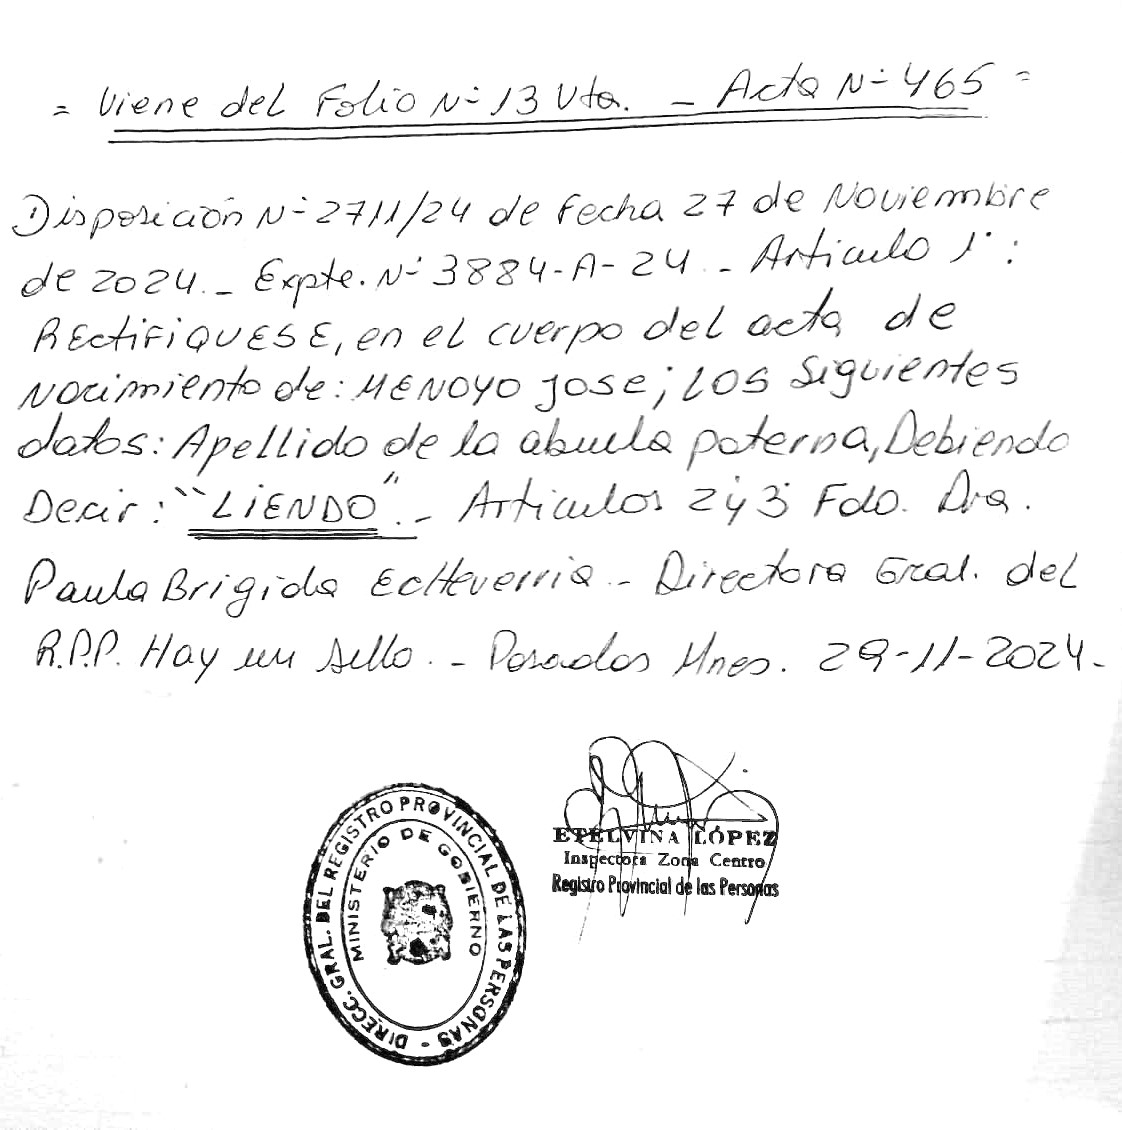 = Viene del Folio Nº 13 Vta. - Acta Nº 465 =
Disposición Nº 2711/24 de Fecha 27 de Noviembre
de 2024.- Expte. Nº 3884-A-24.- Articulo 1º:
RECTIFIQUESE, en el cuerpo del acta de
Nacimiento de: MENOYO JOSE; LOS Siguientes
datos: Apellido de la abuela paterna, Debiendo
Decir: "LIENDO".- Articulos 2º y 3º Fdo. Dra.
Paula Brigida Echeverria.- Directora Gral. del
R.P.P. Hay un sello.- Posadas Mnes. 29-11-2024.-
DIRECC. GRAL. DEL REGISTRO PROVINCIAL DE LAS PERSONAS -
MINISTERIO DE GOBIERNO
ETELVINA LÓPEZ
Inspectora Zona Centro
Registro Provincial de las Personas